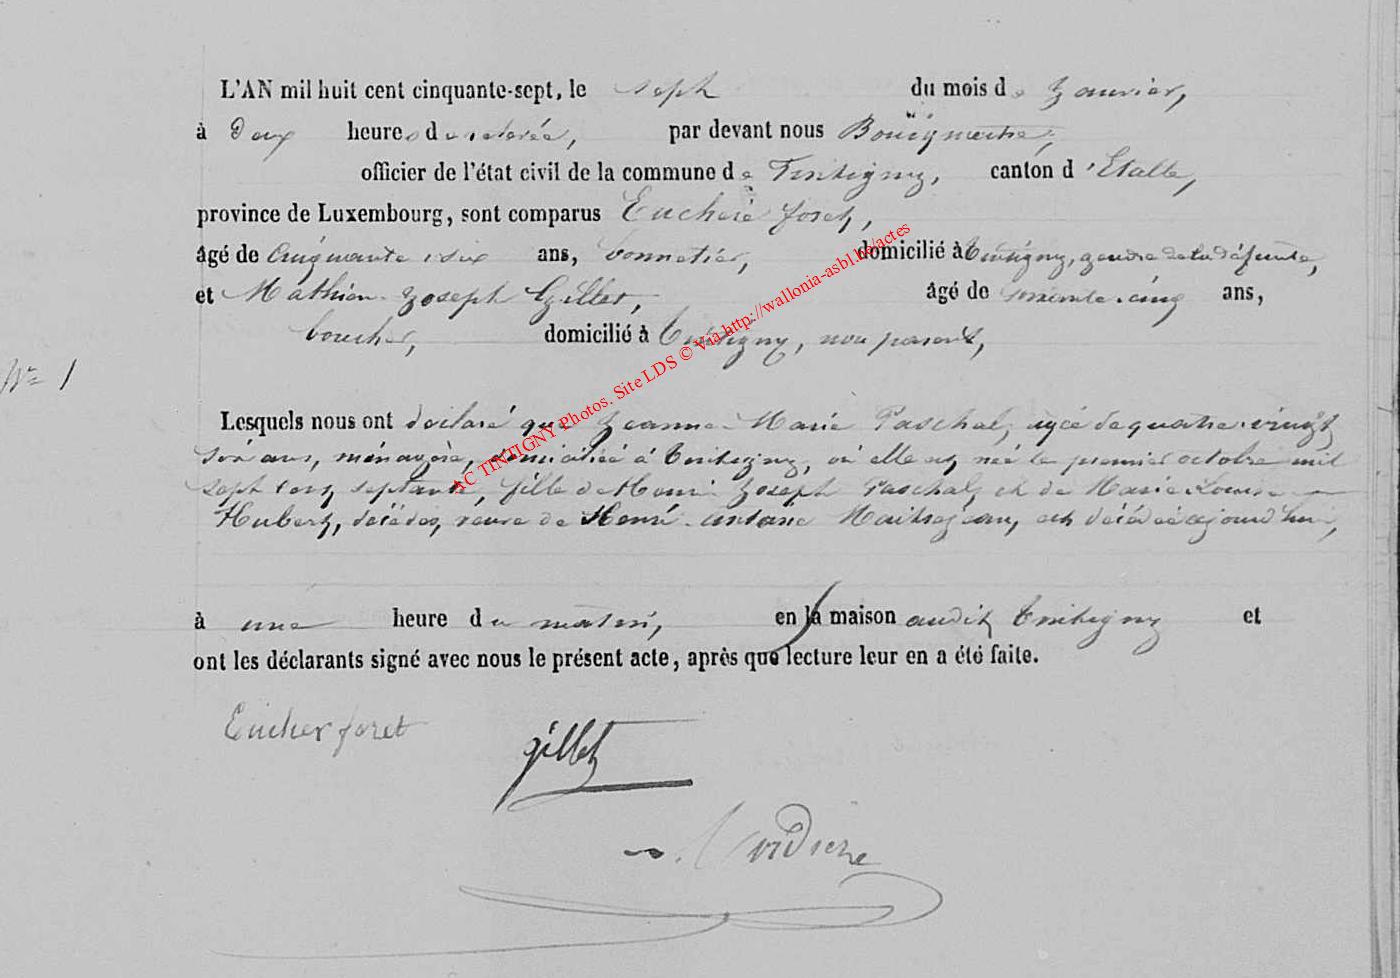 L'AN mil huit cent cinquante-sept, le sept du mois de Janvier,
à deux heures de relevée, par devant nous Bourgmestre,
officier de l'état civil de la commune de Tintigny, canton d'Etalle,
province de Luxembourg, sont comparus Euchère foret,
âgé de Cinquante six ans, bonnetier, domicilié à Tintigny, gendre de la défunte,
et Mathieu Joseph Gillet, âgé de soixante-cinq ans,
boucher, domicilié à Tintigny, non parent,
N° 1
Lesquels nous ont déclaré que Jeanne Marie Paschal, agée de quatre-vingt
six ans, ménagère, domiciliée à Tintigny, où elle est née le premier octobre mil
sept cent septante, fille de Henri Joseph Paschal, et de Marie Louise
Hubert, décédés, veuve de Henri Antoine Maitrejean, est décédée aujourd'hui,
à une heure du matin, en la maison audit Tintigny et
ont les déclarants signé avec nous le présent acte, après que lecture leur en a été faite.
Eucher foret
gillet
AC TINTIGNY Photos. Site LDS © via http://wallonia-asbl.be/actes